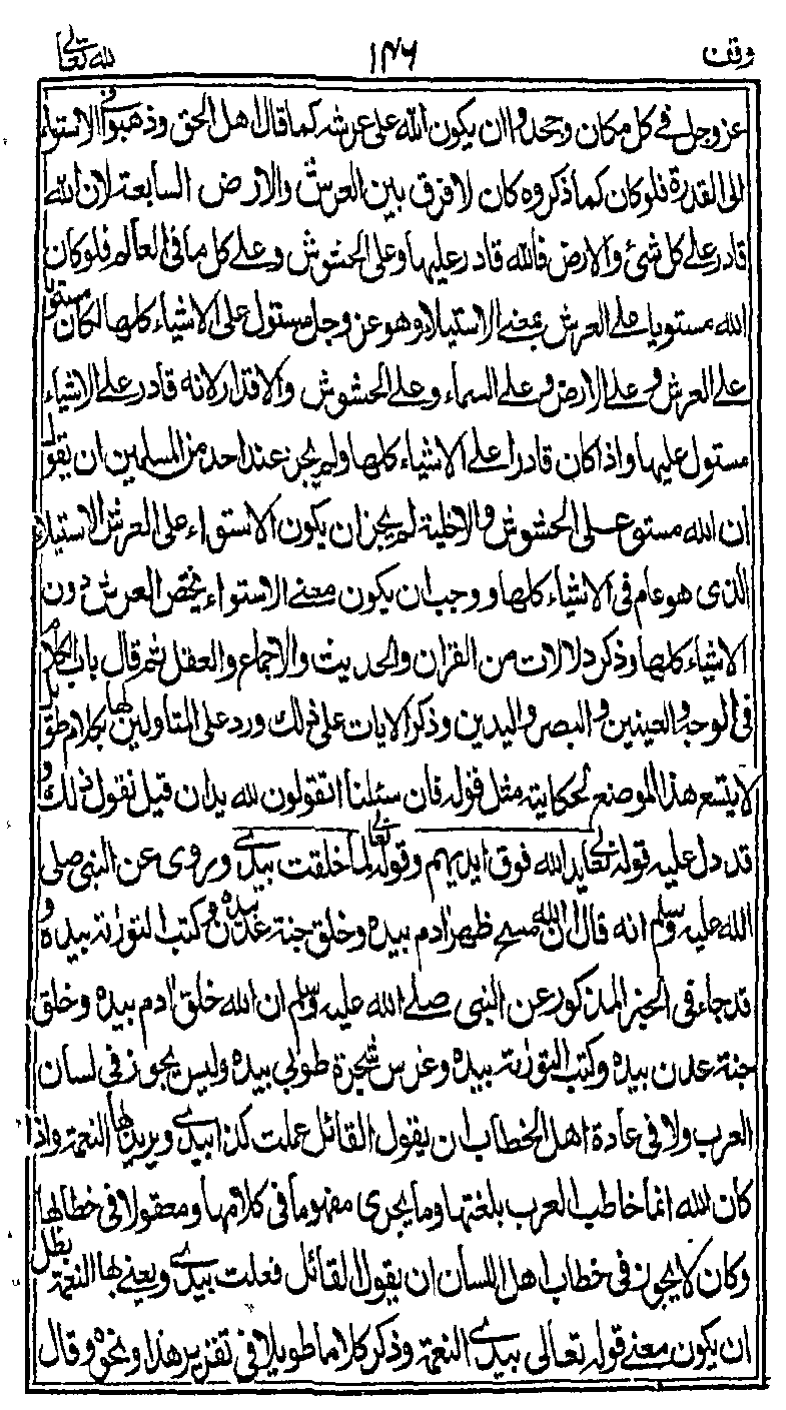 وقف ١٤٦ لله تعالى
عز وجل في كل مكان وجحدوا ان يكون الله على عرشه كما قال اهل الحق وذهبوا في الاستواء
الى القدرة فلو كان كما ذكروه كان لا فرق بين العرش والارض السابعة لان الله
قادر على كل شئ والارض فالله قادر عليها وعلى الحشوش وعلى كل ما فى العالم فلو كان
الله مستويا على العرش بمعنى الاستيلاء وهو عز وجل مستول على الاشياء كلها لكان مستويا
على العرش وعلى الارض وعلى السماء وعلى الحشوش والاقدار لانه قادر على الاشياء
مستول عليها واذا كان قادرا على الاشياء كلها ولم يجز عند احد من المسلمين ان يقول
ان الله مستو على الحشوش والاخلية لم يجز ان يكون الاستواء على العرش الاستيلاء
الذى هو عام فى الاشياء كلها ووجب ان يكون معنى الاستواء يختص العرش دون
الاشياء كلها وذكر دلالات من القران والحديث والاجماع والعقل ثم قال باب الكلام
فى الوجه والعينين والبصر واليدين وذكر الايات على ذلك ورد على المتاولين لها بكلام طويل
لا يتسع هذا الموضع لحكايته مثل قوله فان سئلنا اتقولون لله يدان قيل نقول ذلك و
قد دل عليه قوله تعالى يد الله فوق ايديهم وقوله تعالى لما خلقت بيدي وروى عن النبى صلى
الله عليه وسلم انه قال ان الله مسح ظهر ادم بيده وخلق جنة عدن بيده وكتب التوراة بيده و
قد جاء فى الخبر المذكور عن النبى صلى الله عليه وسلم ان الله خلق ادم بيده وخلق
جنة عدن بيده وكتب التوراة بيده وغرس شجرة طوبى بيده وليس يجوز فى لسان
العرب ولا فى عادة اهل الخطاب ان يقول القائل عملت كذا بيدي ويريد بها النعمة واذا
كان الله انما خاطب العرب بلغتها وما يجرى مفهوما فى كلامها ومعقولا فى خطابها
وكان لا يجوز فى خطاب اهل اللسان ان يقول القائل فعلت بيدي ويعنى بها النعمة بطل
ان يكون معنى قوله تعالى بيدي النعمة وذكر كلاما طويلا فى تقرير هذا ونحوه وقال